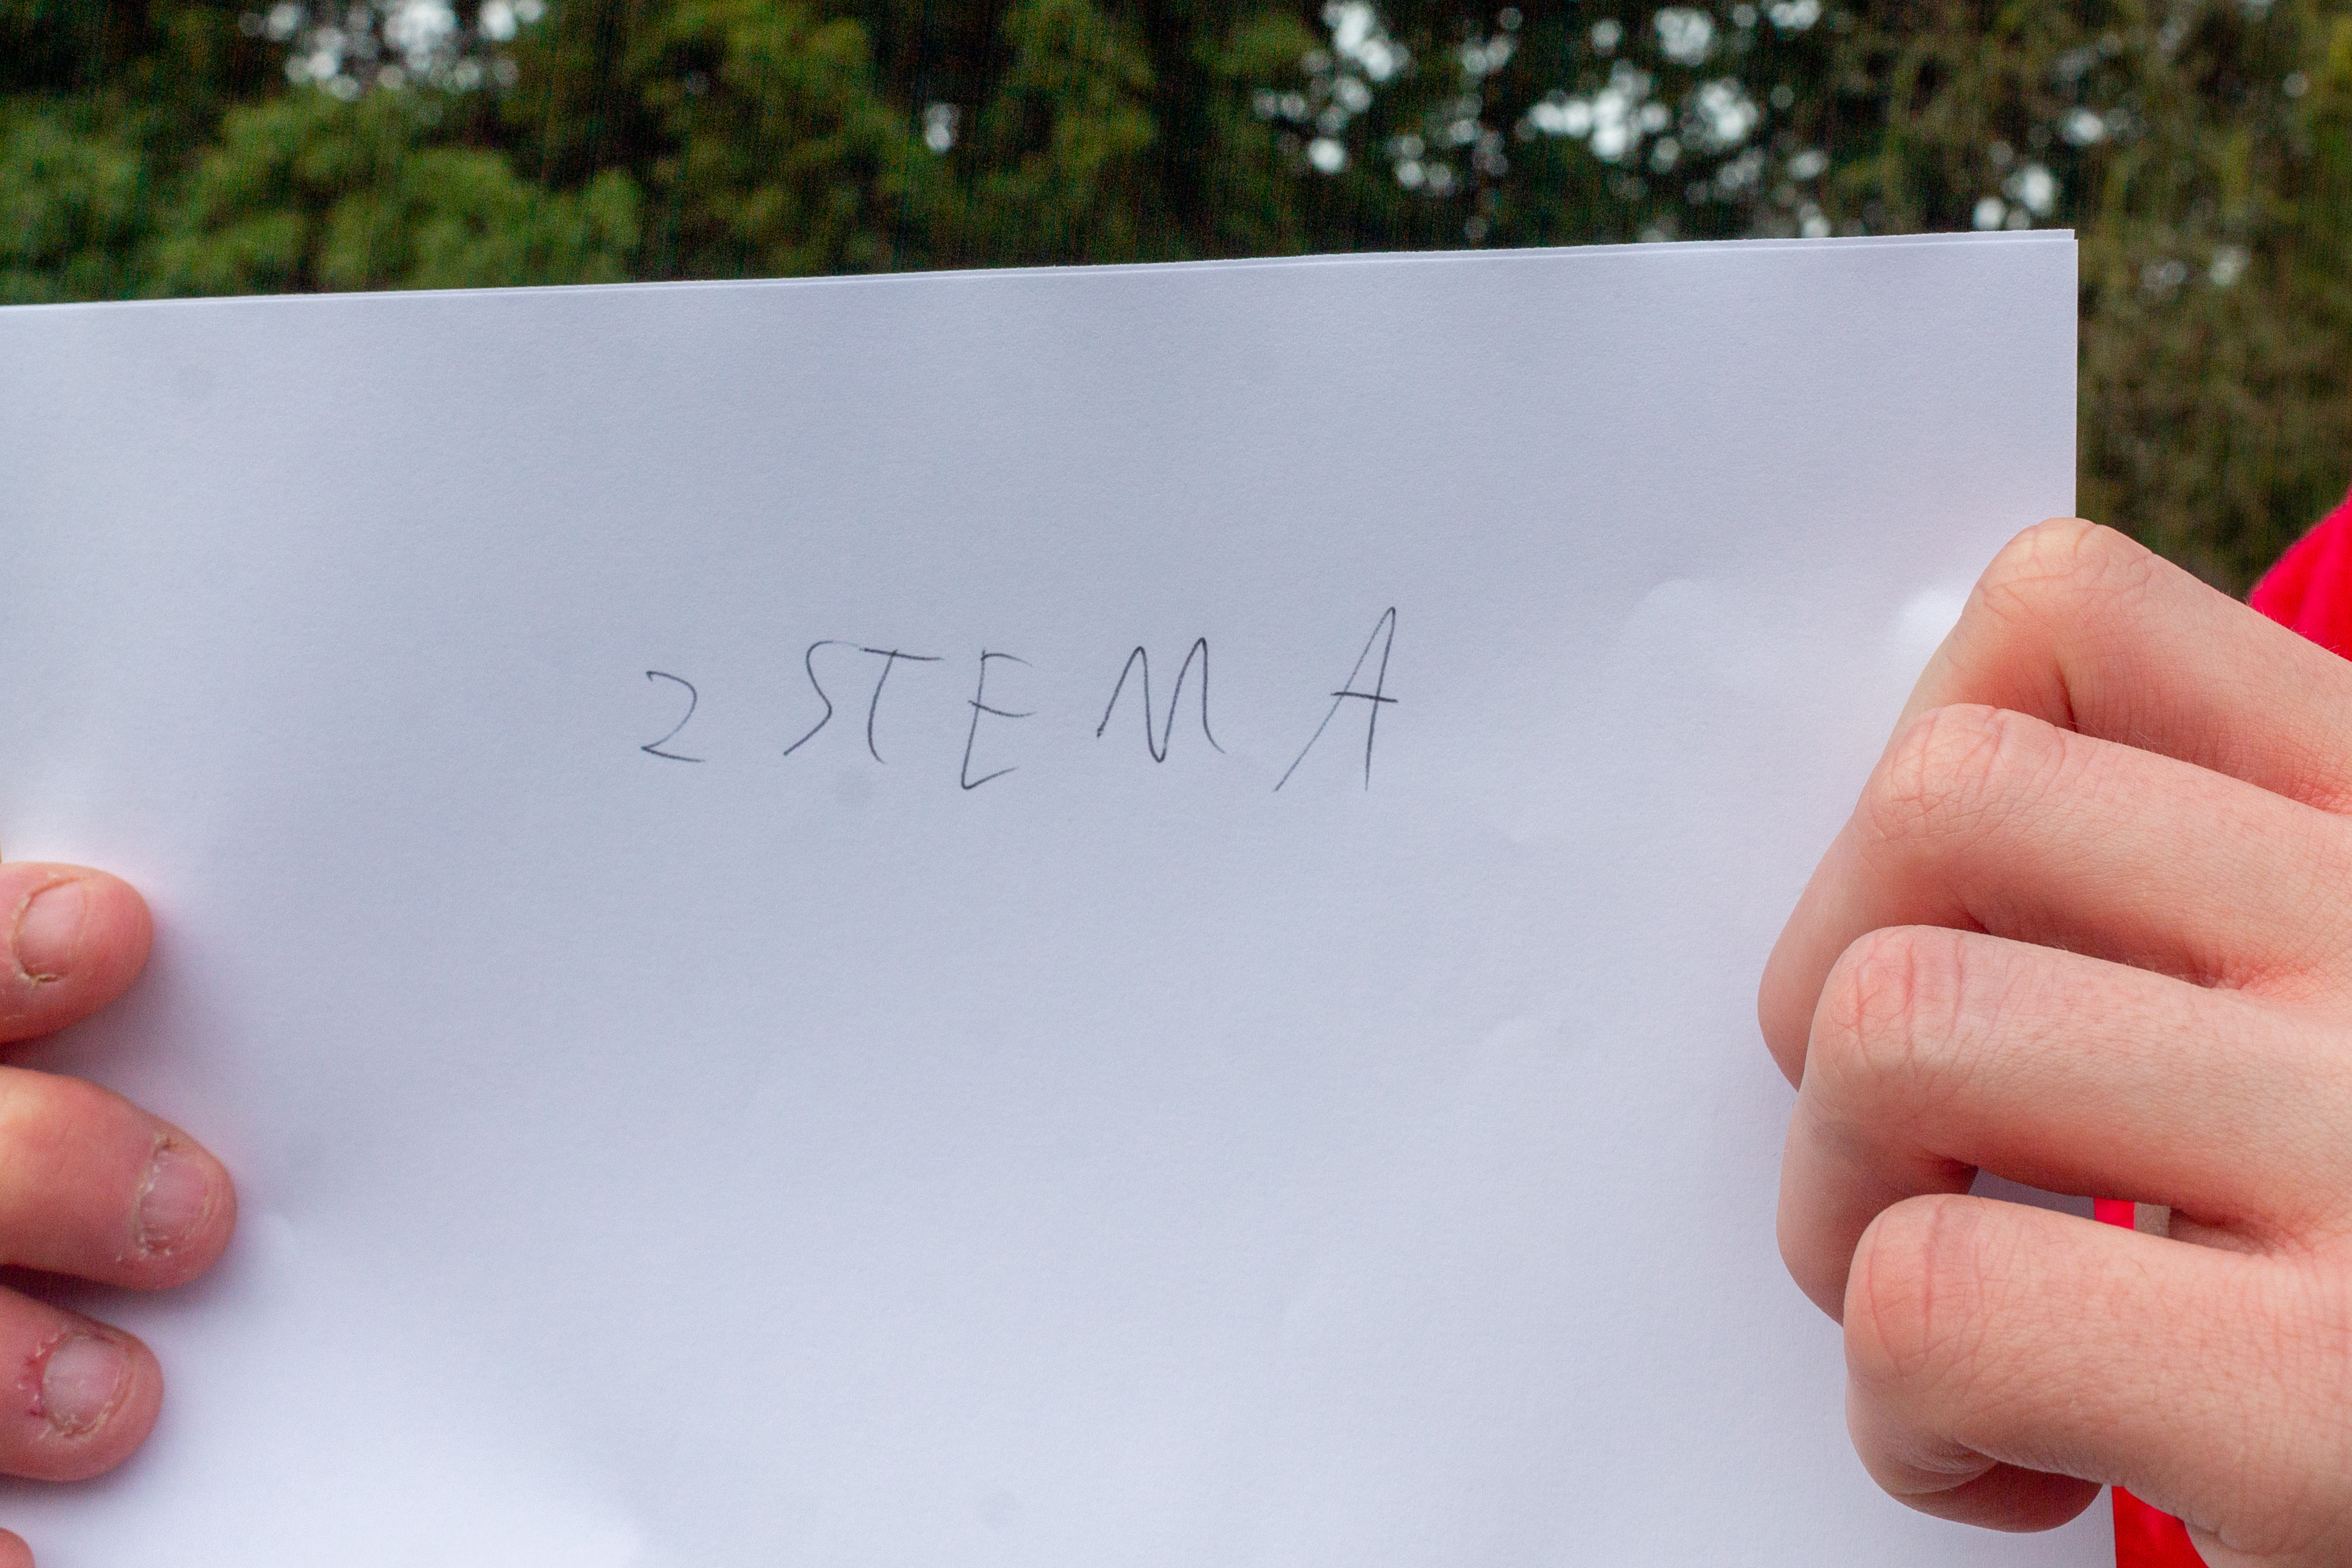 2 STEMA